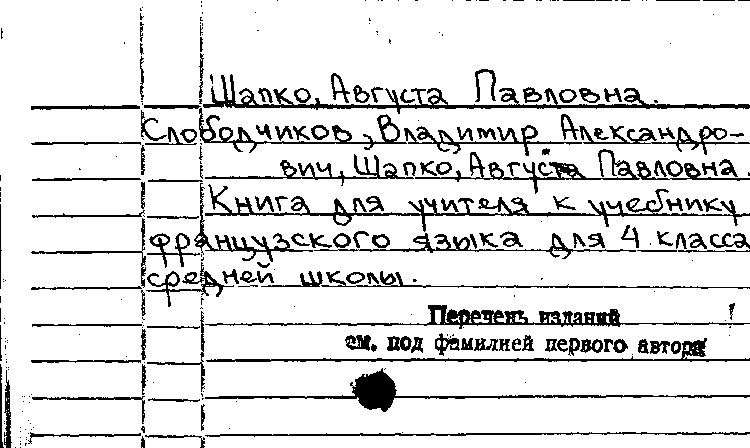 Шапко, Августа Павловна.
Слободчиков, Владимир Александро-
вич, Шапко, Августа Павловна.
Книга для учителя к учебнику
французского языка для 4 класса
средней школы.
Перечень изданий
см. под фамилией первого автора